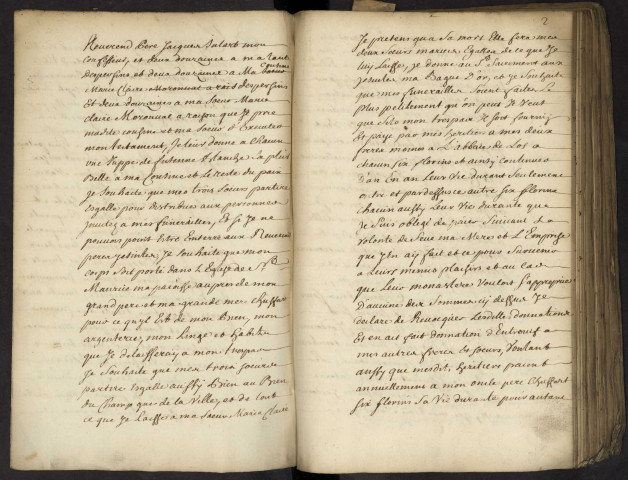 Reverend Pere Jacques Dulart mon
confesseur, et deux douzaines a ma tante
et deux douzaines a Ma Cousine
Marie Claire
Et deux douzaines a ma Soeur Marie
claire a raison que Je prie
madite cousine et ma Soeur d'Executer
mon testament, Je leur donne a Chacun
une Juppe de futenne blanche La plus
Belle a ma Cousine et Le reste du pain
Je Souhaite que mes trois Soeurs partire
Egalle pour distribuer aux personnes
a mes funerailles, Et Sy Je ne
pouvois point Estre Enterré aux Reverend
peres Jesuites Je Souhaite que mon
corps Soit porté dans L'Eglise de St
Maurice ma paroisse aupres de mon
grand pere et ma grande mere Chuffart
pour ce qu'il Est de mon Bien, mon
argenterie mon Linge et habits
que Je delaisseray a mon trepas
Je Souhaite que mes trois Soeurs
partire Egalle aussy Bien au Bien
du Champ que de la Ville, et de tout
ce que Je Laisse a ma Soeur Marie Claire
2
Je pretens qu'a Sa mort Elle fera mes
deux Soeurs mariees Egalles de ce que Je
luy Laisse, Je donne au St Sacrement aux
Jesuites ma Bague D'or, et Je Souhaite
que mes funerailles Soient faites Le
plus petitement qu'on peut, Je Veut
que Sito mon trespas Il Soit fourny
Et payé par mes heritiers a mes deux
freres moines a L'abbaye de Los a
chacun Six florins Et ainsy continuer
D'an En an Leur Vie durant Seulement
a tir et pardessus autre Six florins
chacun aussy Leur Vie durante que
Je Suis obligé de paier Suivant La
Volonté de Feue ma Mere et L'Emprise
que J'En ay fait et ce pour Survenir
a Leurs menus plaisirs et au cas
que Leur monastere Voulut S'approprier
D'aucune des Sommes cy dessus Je
declare de Revocquer Lesdittes donnations
Et en ait fait donnation d'Entrevif a
mes autres freres Et Soeurs, Voulant
aussy que mesdit heritiers paient
annuellement a mon oncle pere Chuffart
Six florins Sa Vie durante pour autant